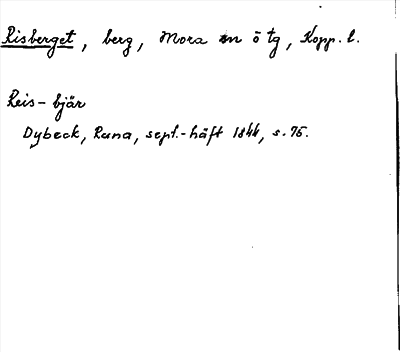 Risberget, berg, Mora sn ö tg, Kopp. l.
Reis-bjär
Dybeck, Runa, sept.-häft 1844, s. 75.